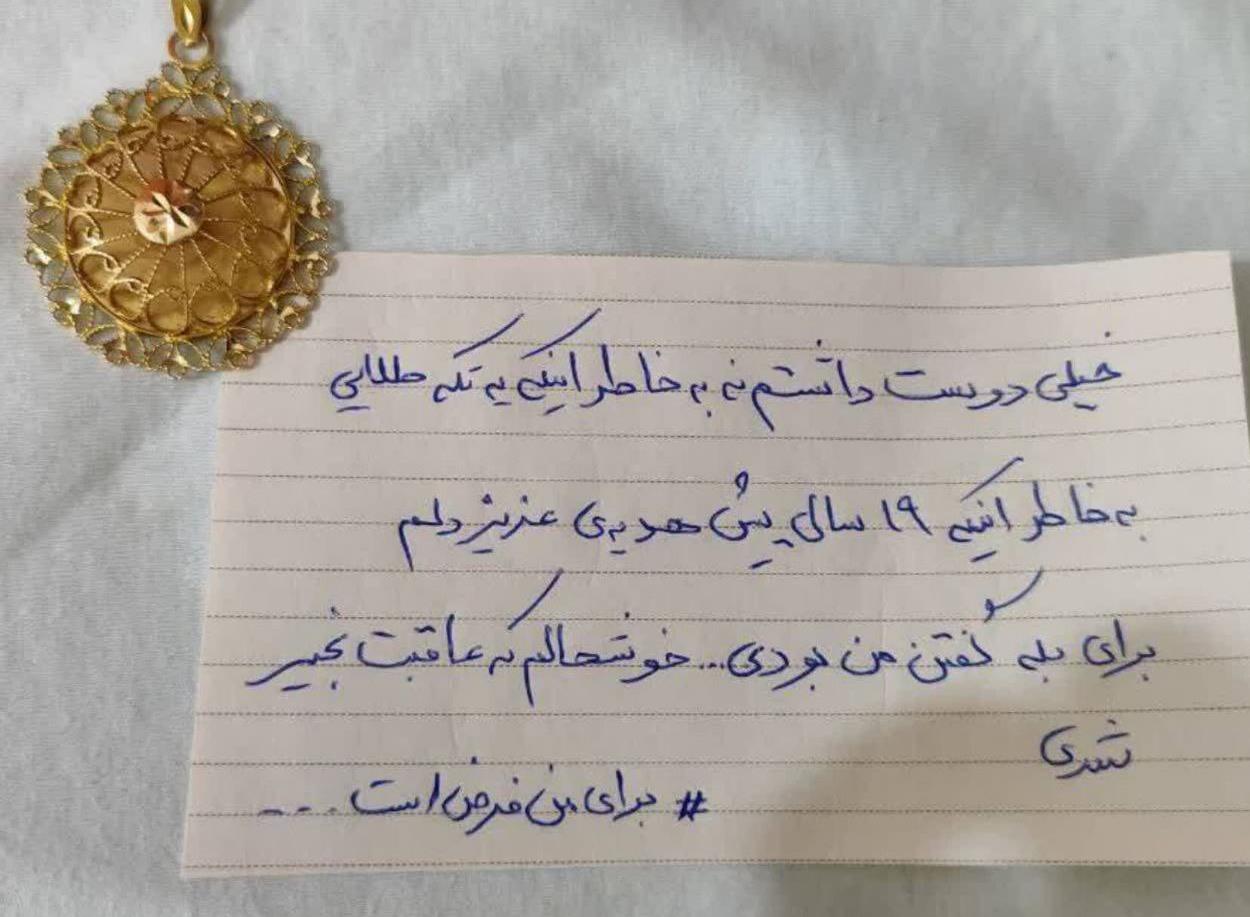 خیلی دوست داشتم نه به خاطر اینکه یه تکه طلایی
به خاطر اینکه ۱۹ سال پیش هدیه‌ی عزیز دلم
برای بله گفتن من بودی... خوشحالم که عاقبت بخیر
شدی
# برای من فرض است ...